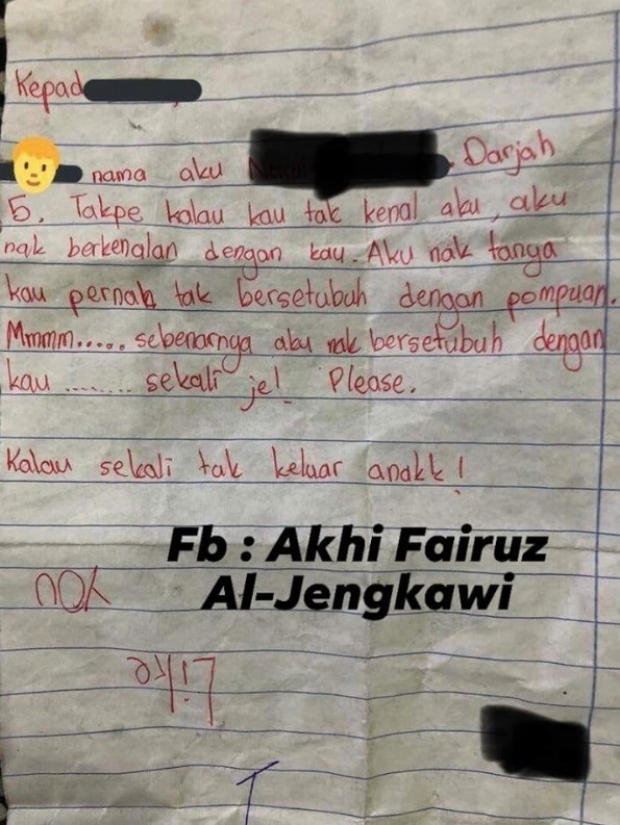 Kepad
nama aku Darjah
5. Takpe kalau kau tak kenal aku, aku
nak berkenalan dengan kau. Aku nak tanya
kau pernah tak bersetubuh dengan pompuan.
Mmmm..... sebenarnya aku nak bersetubuh dengan
kau ........ sekali je! Please.
Kalau sekali tak keluar anakk!
Fb : Akhi Fairuz
Al-Jengkawi
I
Like
YOU